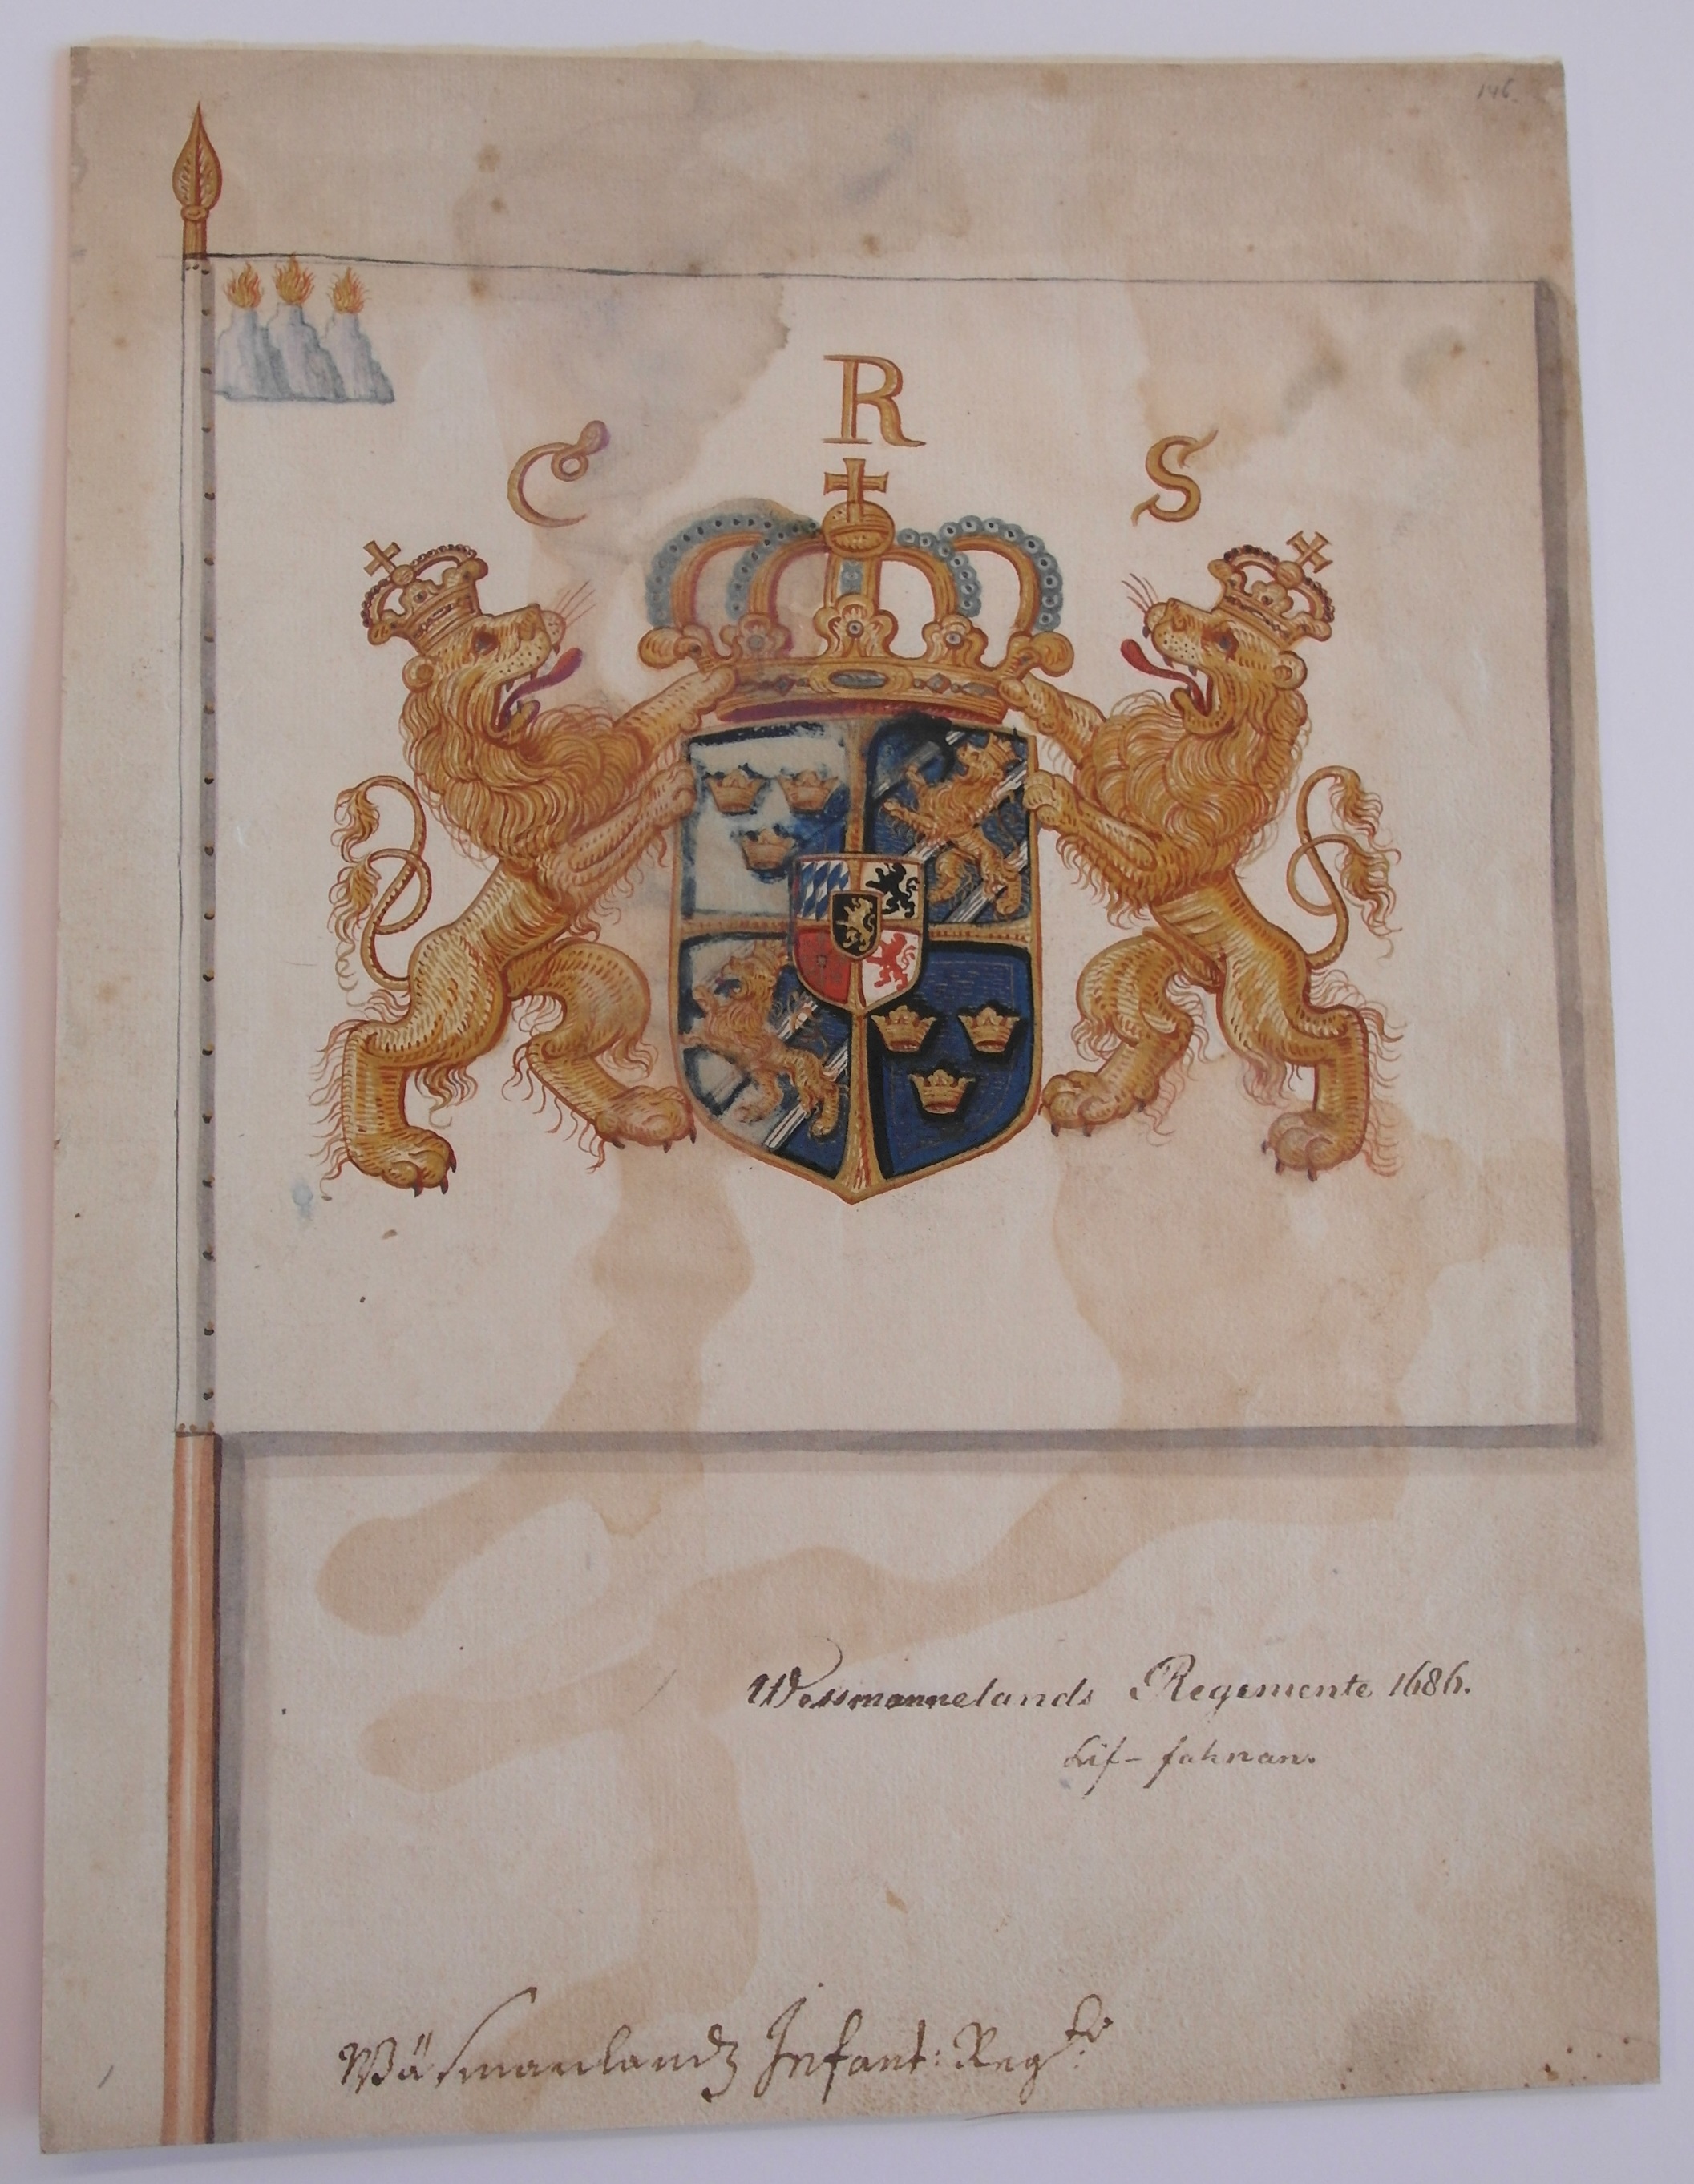 146.
R
C S
Wessmannelands Regemente 1686.
Lif-fahnan.
Wäsmanlandz Infant: Reg:te